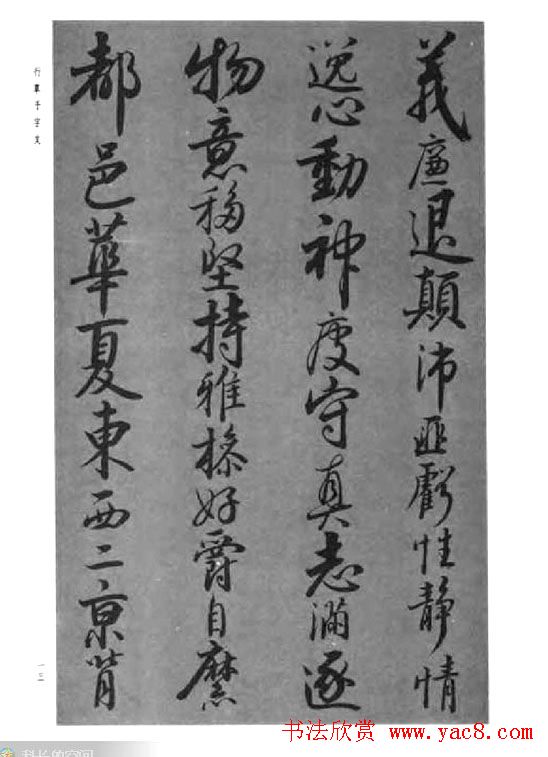 義廉退顛沛匪虧性靜情
逸心動神疲守真志滿逐
物意移堅持雅操好爵自縻
都邑華夏東西二京背
行草千字文
一三
书法欣赏
www.yac8.com
科长的空间